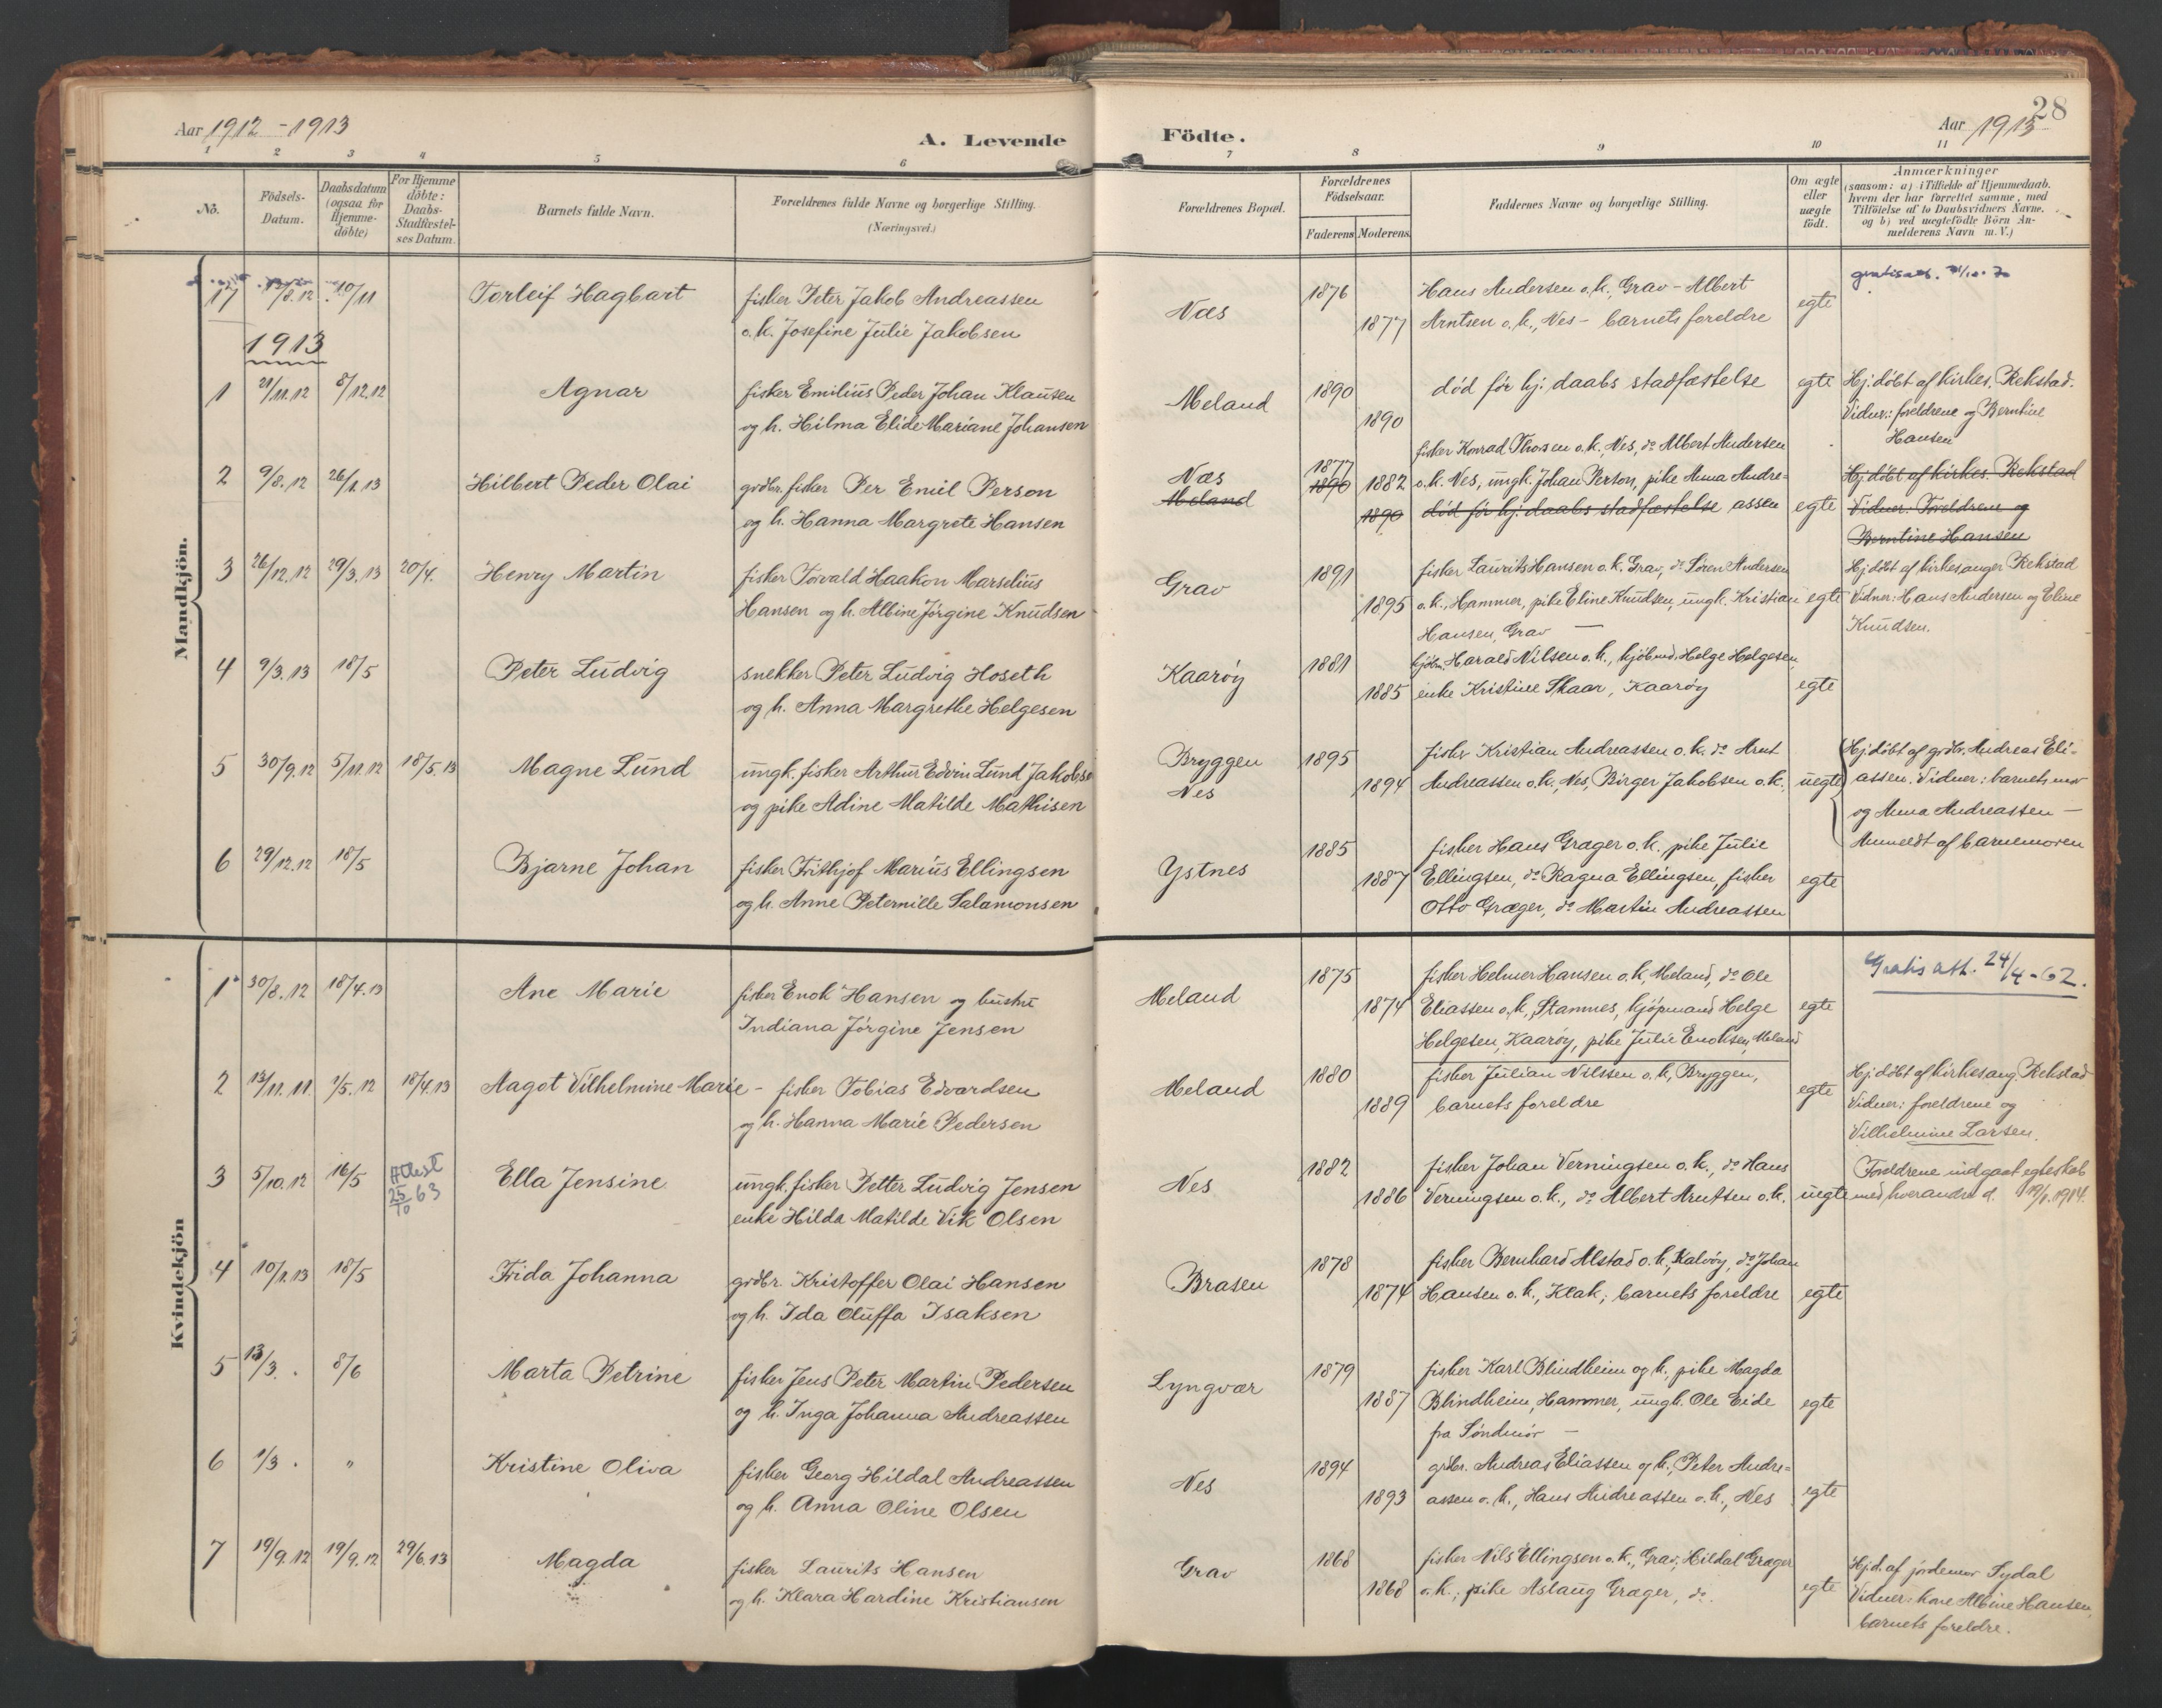 Aar 1912 - 1913
A. Levende Födte.
Aar 1913
28
1 2 3 4 5 6 7 8 9 10 11
No.
Födsels-Datum.
Daabsdatum (ogsaa for Hjemme-döbte)
For Hjemme döbte: Daabs-Stadfæstel-ses Datum.
Barnets fulde Navn.
Forældrenes fulde Navne og borgerlige Stilling. (Næringsvei.)
Forældrenes Bopæl.
Forældrenes Födselsaar.
Faderens Moderens
Faddernes Navne og borgerlige Stilling.
Om ægte eller uægte födt.
Anmærkninger (saasom: a) i Tilfælde af Hjemmedaab. hvem der har forrettet samme, med Tilföielse af to Daabsvidners Navne. og b) ved uægtefödte Börn An-melderens Navn m. V.)
Mandkjön.
17 /8.12 10/11 Torleif Hagbart
fisker Peter Jakob Andreassen
o.h. Josefine Julie Jakobsen
Næs 1876 1877
Hans Andersen o.h., Grav - Albert
Arntsen o.h., Nes - barnets foreldre
egte
1913
1 21/11.12 8/12.12 Agnar
fisker Emilius Peder Johan Klausen
og h. Hilma Elide Mariane Johansen
Meland 1890 1890
død før hj. daabs stadfæstelse
egte
Hj. døbt af kirkes. Rekstad.
Vidner: foreldrene og Berntine
Hansen
2 9/8.12 26/1.13 Hilbert Peder Olai
grdbr. fisker Per Emil Person
og h. Hanna Margrete Hansen
Næs
Meland
1877 1890 1882 1890
fisker Konrad Thorsen o.h., Nes, do Albert Andersen
o.h. Nes, ungk. Johan Person, pike Anna Andre=
død før hj. daabs stadfæstelse assen
egte
Hj. døbt af kirkes. Rekstad
Vidner: Foreldrene og
Berntine Hansen
3 26/12.12 29/3.13 20/4. Henry Martin
fisker Torvald Haakon Marselius
Hansen og h. Albine Jørgine Knudsen
Grav 1891 1895
fisker Laurits Hansen o.h. Grav, do Søren Andersen
o.h., Hammer, pike Eline Knudsen, ungk. Kristian
Hansen, Grav -
egte
Hj. døbt af kirkesanger Rekstad
Vidner: Hans Andersen og Eline
Knudsen.
4 9/3.13 18/5 Peter Ludvig
snekker Peter Ludvig Hoseth
og h. Anna Margrethe Helgesen
Kaarøy 1881 1885
kjøbm. Harald Nilsen o.h., kjøbmd. Helge Helgesen,
enke Kristine Skaar, Kaarøy
egte
5 30/9.12 5/11.12 18/5.13 Magne Lund
ungk. fisker Arthur Edvin Lund Jakobse
og pike Adine Matilde Mathisen
Bryggen
Nes
1895 1894
fisker Kristian Andreassen o.h. do Arnt
Andreassen o.h., Nes, Birger Jakobsen o.h.
uegte
Hj. døbt af grdbr. Andreas Eli=
assen. Vidner: barnets mor
og Anna Andreassen -
Anmeldt af barnemoren
6 29/12.12 18/5 Bjarne Johan
fisker Frithjof Marius Ellingsen
og h. Anne Peternille Salamonsen
Ystnes 1885 1887
fisker Hans Græger o.h., pike Julie
Ellingsen, do Ragna Ellingsen, fisker
Otto Græger, do Martin Andreassen
egte
Kvindekjön
1 30/8.12 18/4.13 Ane Marie
fisker Enok Hansen og hustru
Indiana Jørgine Jensen
Meland 1875 1874
fisker Helmer Hansen o.h., Meland, do Ole
Eliassen o.h., Stamnes, kjøpmand Helge
Helgesen, Kaarøy, pike Julie Enoksen, Meland
egte
Gratis att. 24/4-62.
2 13/11.11. 1/5.12 18/4.13 Aagot Vilhelmine Marie -
fisker Tobias Edvardsen
og h. Hanna Marie Pedersen
Meland 1880 1889
fisker Julian Nilssen o.h., Bryggen,
barnets foreldre
egte
Hj. døbt af kirkesang. Rekstad
Vidner: foreldrene og
Vilhelmine Larsen.
3 5/10.12 16/5 Attest 25/10 63 Ella Jensine
ungk. fisker Petter Ludvig Jensen
enke Hilda Matilde Vik Olsen
Nes 1882 1886
fisker Johan Verningsen o.h., do Hans
Verningsen o.h., do Albert Arntsen o.h.
uegte
Foreldrene indgaat egteskab
med hverandre d. 19/1.1914.
4 10/1.13 18/5 Frida Johanna
grdbr. Kristoffer Olai Hansen
og h. Ida Oluffa Isaksen
Brasen 1878 1874
fisker Bernhard Alstad o.h., Kalvøy, do Johan
Hansen o.h., Klak; barnets foreldre
egte
5 13/3. 8/6 Marta Petrine
fisker Jens Peter Martin Pedersen
og h. Inga Johanna Andreassen
Lyngvær 1879 1887
fisker Karl Blindheim og h., pike Magda
Blindheim, Hammer, ungk. Ole Eide
fra Søndmør -
egte
6 1/3. " Kristine Oliva
fisker Georg Hildal Andreassen
og h. Anna Oline Olsen
Nes 1894 1893
grdbr. Andreas Eliassen og h., Peter Andre=
assen o.h., Hans Andreassen o.h., Nes
egte
7 19/9.12 19/9.12 29/6.13 Magda
fisker Laurits Hansen
og h. Klara Hardine Kristiansen
Grav 1868 1868
fisker Nils Ellingsen o.h., Grav; Hildal Græger
o.h.; pike Aslaug Græger, do.
egte
Hj.d. af jordemor Sydal
Vidner: kone Albine Hansen,
barnets foreldre.